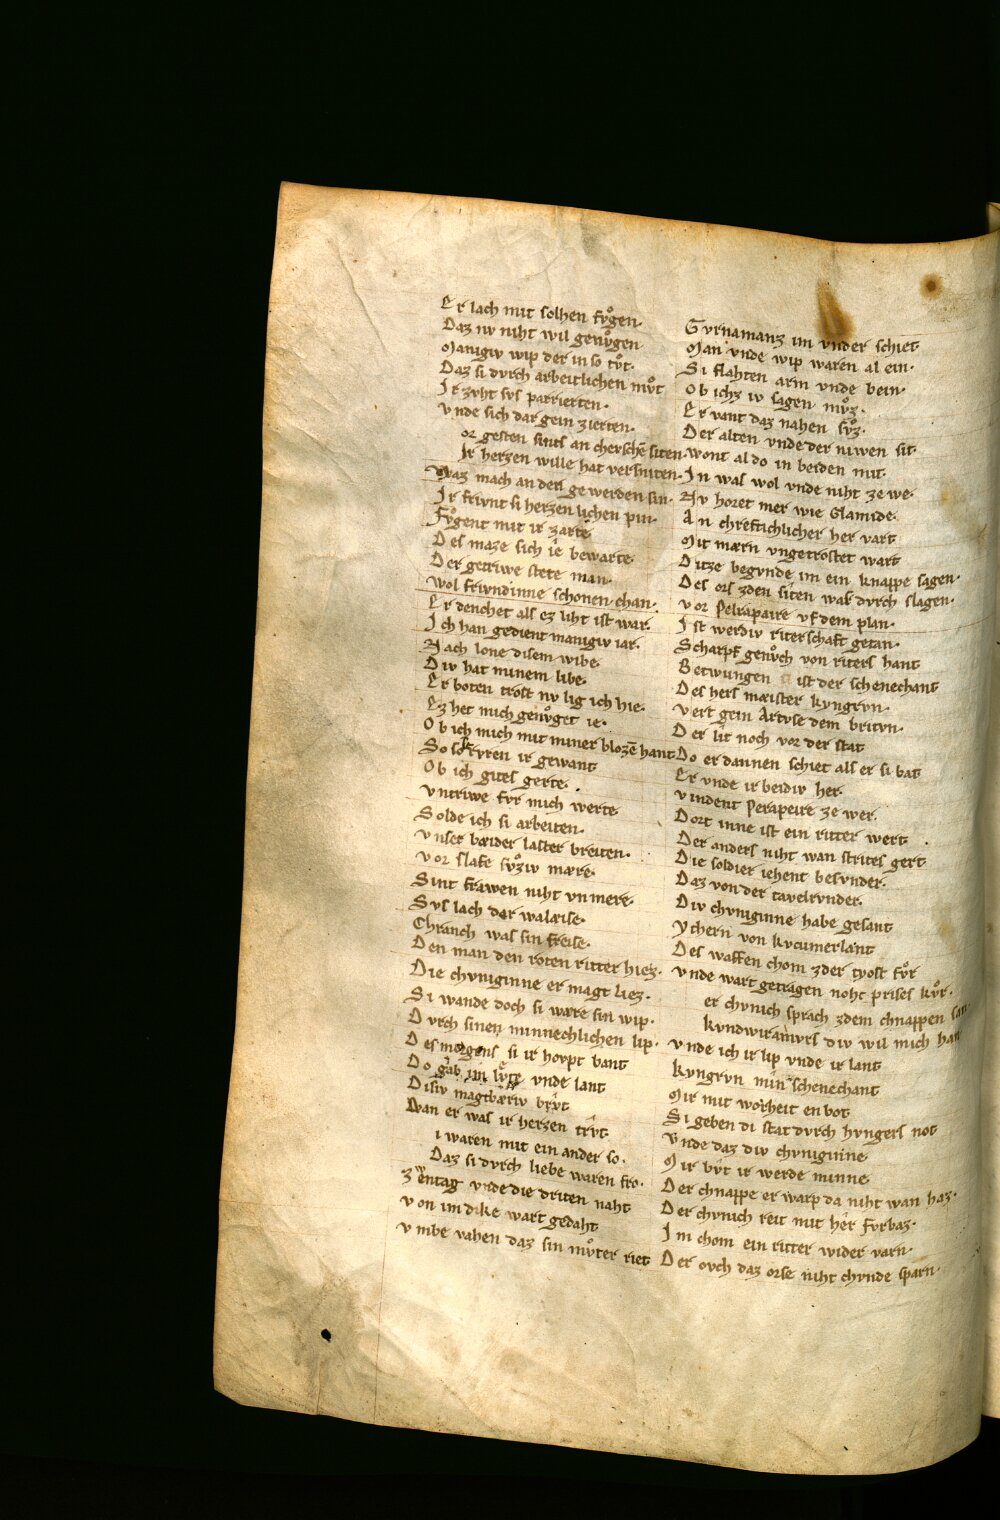 Er lach mit solhen fvͦgen.
Daz nv niht wil genvͦgen
Manigiv wip der in so tvͦt.
Daz si dvrch arbeitlichen mvͦt
Ir zvht svs parrierten.
Vnde sich dar gein zierten.
or gesten sints an chevschē siten
Ir herzen wille hat versniten.
Waz mach an den ge werden sin.
Ir frivnt si herzen lichen pin.
Fvͦgent mit ir zarte
Des maze sich ie bewarte.
Der getriwe stete man.
Wol frivndinne schonen chan.
Er denchet als ez liht ist war.
Ich han gedient manigiv iar.
Nach lone disem wibe.
Div hat minem libe.
Er boten trost nv lig ich hie.
Ez het mich genvͦget ie.
Ob ich mich mit miner blozē hant
So solt rvren ir gewant
Ob ich gites gerte.
Vntriwe fvr mich werte
Solde ich si arbeiten.
Vnser bæider laster breiten.
Vor slafe svͦziv mære.
Sint frawen niht vnmere.
Svs lach der waleise.
Chranch was sin freise.
Den man den roten ritter hiez.
Die chvniginne er magt liez.
Si wande doch si wære sin wip.
Dvrch sinen minnechlichen lip.
Des morgens si ir hovpt bant
Do gab im lvͦte vnde lant
Disiv magtbæriv brvt
Wan er was ir herzen trvt.
i waren mit ein ander so.
Daz si dvrch liebe waren fro.
Zwentag vnde die driten naht
Von im dike wart gedaht
Vmbe vahen daz sin mvͦter riet
Gvrnamanz im vnder schiet
Man vnde wip waren al ein.
Si flahten arm vnde bein.
Ob ichz iv sagen mvͦz.
Er vant daz nahen svͦz.
Der alten vnde der niwen sit.
Wont al do in beiden mit.
In was wol vnde niht ze we.
Nv horet mer wie Clamide.
An chreftichlicher her vart
Mit mærn vngetrostet wart
Ditze begvnde im ein knappe sagen.
Des ors zden siten was dvrch slagen.
Vor Pelrapaire vf dem plan.
Ist werdiv riterschaft getan.
Scharpf genvͦch von riters hant
Betwungen ist der schenechant
Des hers mæister kyngrvn.
Vert gein Artvse dem britvn.
Der lit noch vor der stat
Do er dannen schiet als er si bat
Er vnde ir beidiv her.
Vindent Perapeire ze wer.
Dort inne ist ein ritter wert
Der anders niht wan strites gert
Die soldier iehent besvnder.
Daz von der tavelrvnder.
Div chvniginne habe gesant
Ythern von kvcumerlant
Des waffen chom zder tyost fvͦr
Vnde wart getragen noht prises kvͦr.
er chvnich sprach zdem chnappen san
kvndwiramvrs div wil mich han
Vnde ich ir lip vnde ir lant
Kyngrvn min schenechant
Mir mit worheit enbot
Si geben di stat dvrch hvngers not
Vnde daz div chvniginne
Mir bvͦt ir werde minne
Der chnappe er warp da niht wan haz.
Der chvnich reit mit her fvrbaz.
Im chom ein ritter wider varn.
Der ovch daz orse niht chvnde sparn.